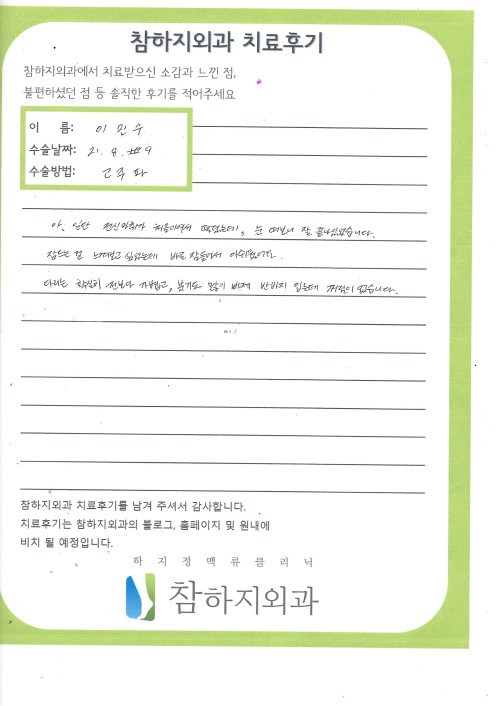 참하지외과 치료후기
참하지외과에서 치료받으신 소감과 느낀 점,
불편하셨던 점 등 솔직한 후기를 적어주세요
이 름: 이민수
수술날짜: 21. 8. 9
수술방법: 고주파
아, 일단 전신마취가 처음이어서 떨렸는데, 눈 떠보니 잘 끝나있었습니다.
잠드는 걸 느껴보고 싶었는데 바로 잠들어서 아쉬웠어요.
다리는 확실히 전보다 가볍고, 붓기도 많이 빠져 반바지 입는데 걱정이 없습니다.
참하지외과 치료후기를 남겨 주셔서 감사합니다.
치료후기는 참하지외과의 블로그, 홈페이지 및 원내에
비치 될 예정입니다.
하지정맥류클리닉
참하지외과